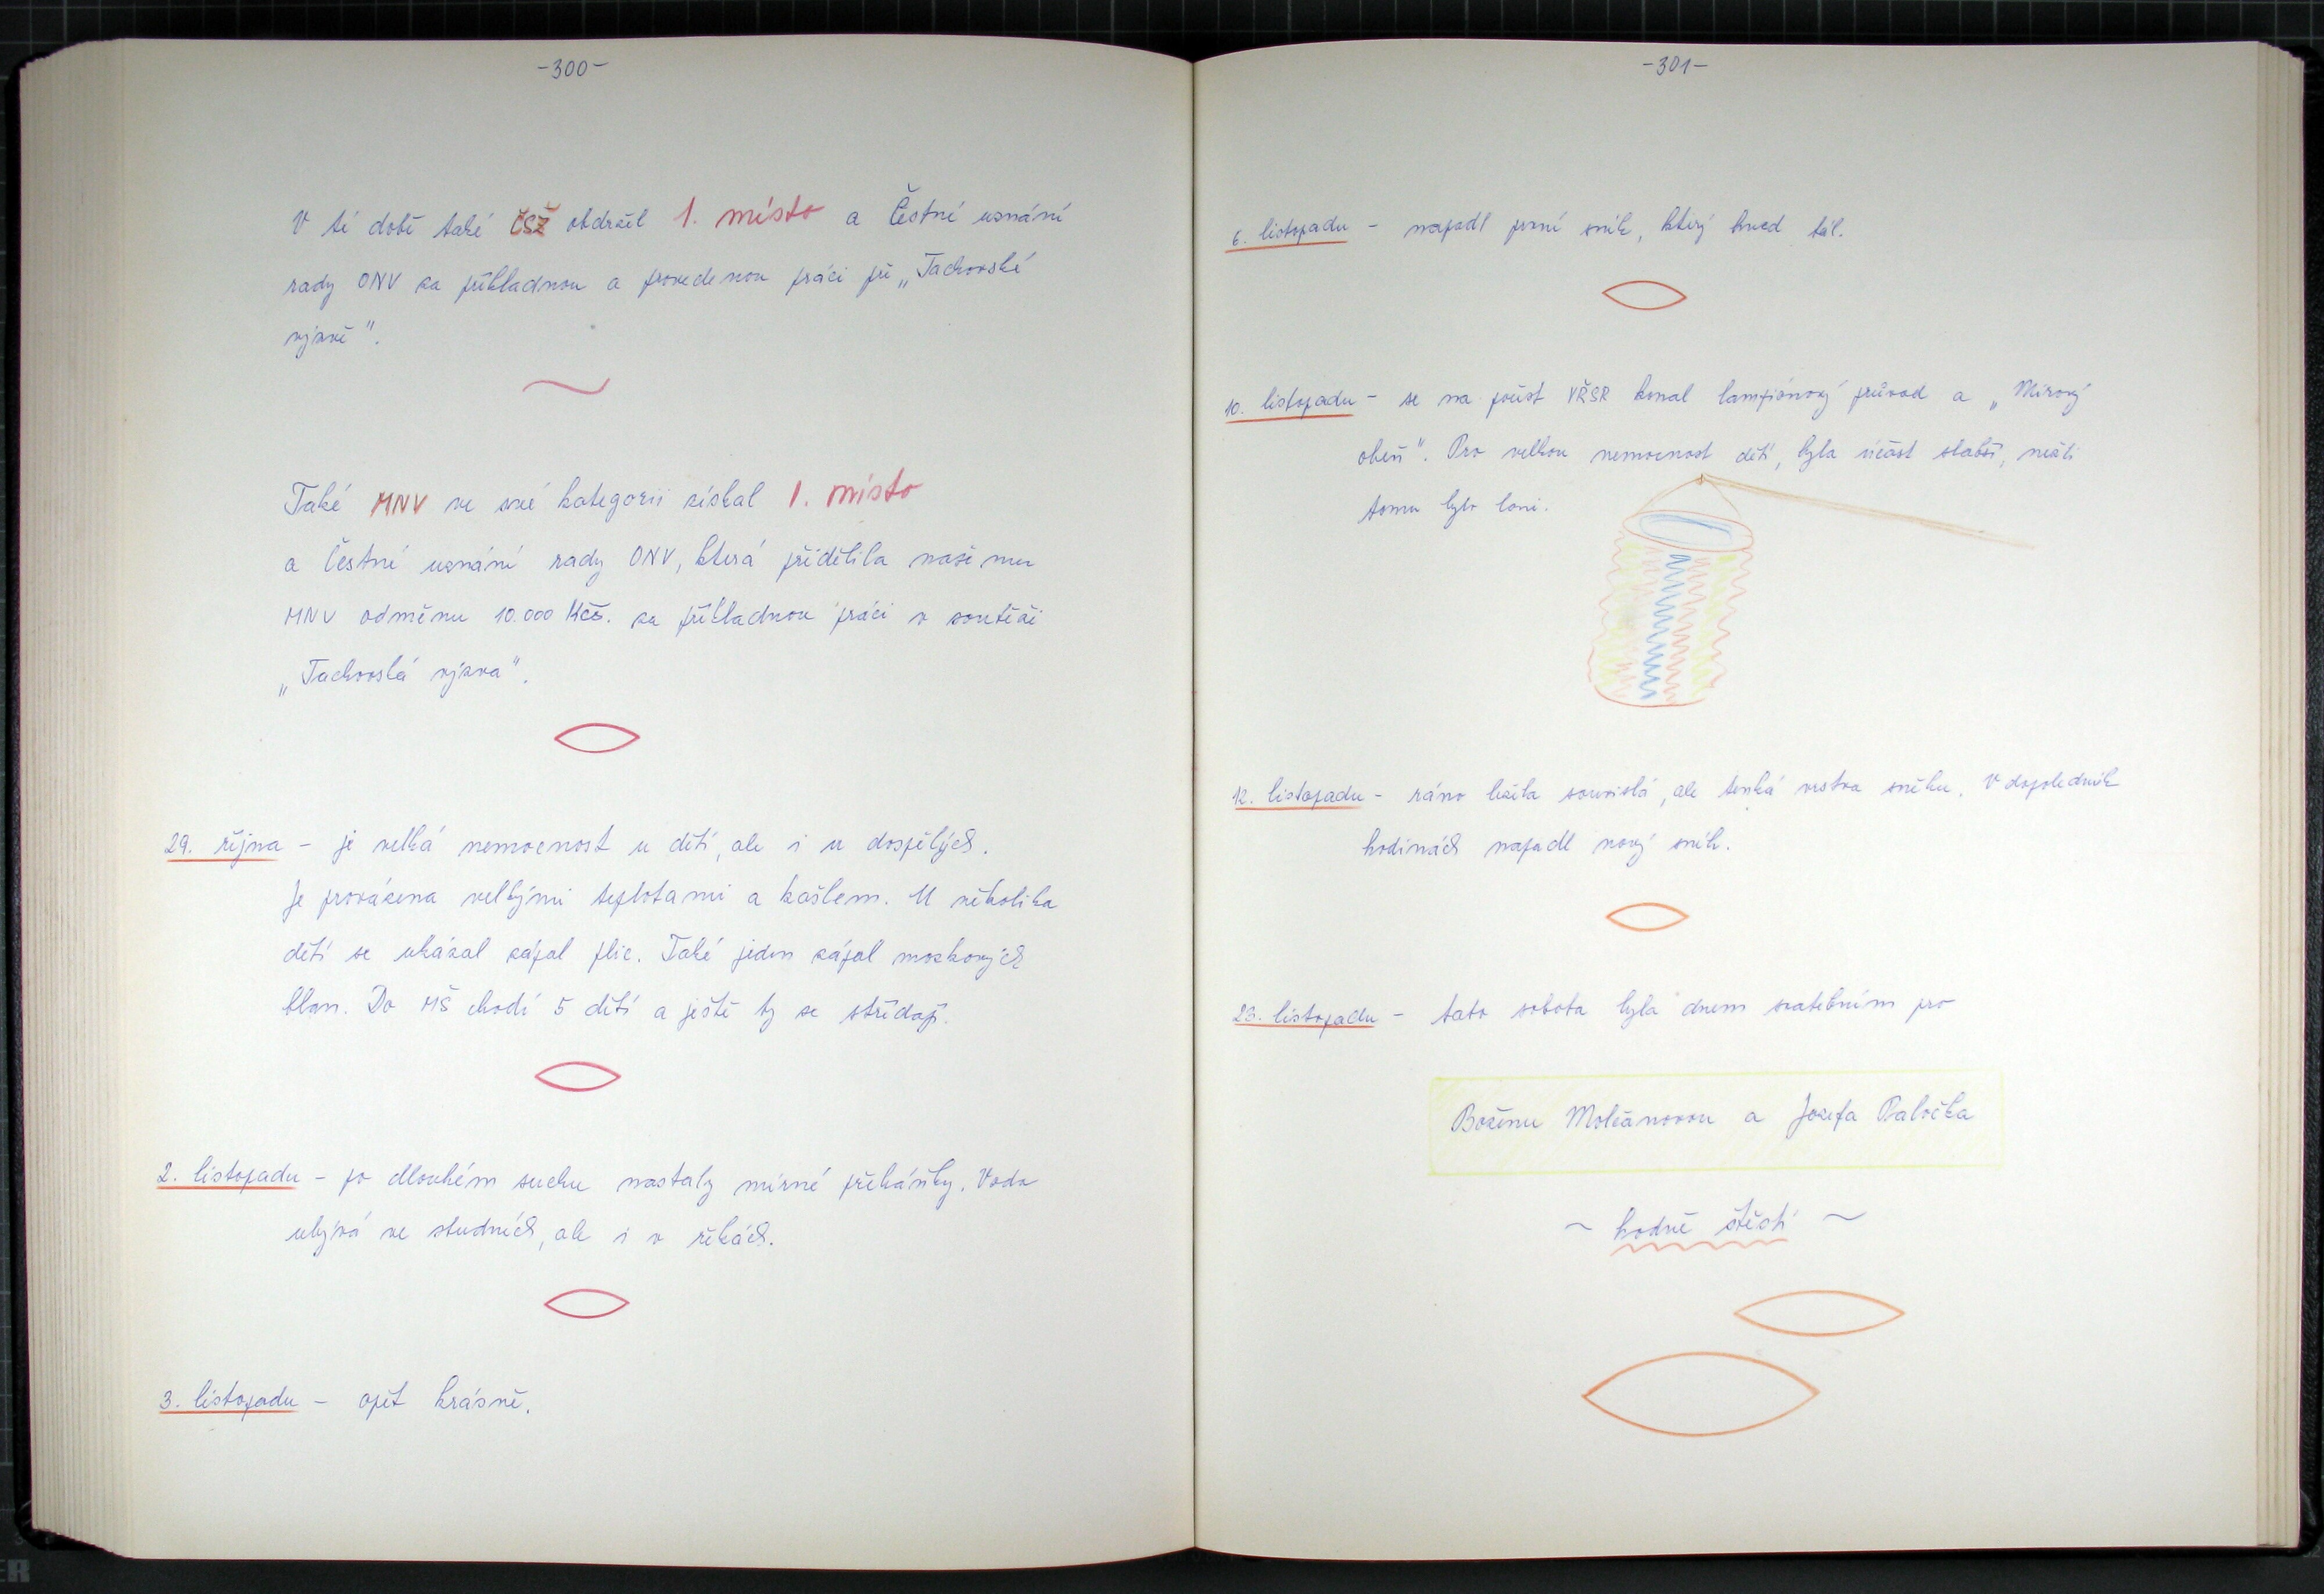 -300-
V té době také ČSŽ obdržel 1. místo a Čestné uznání
rady ONV za příkladnou a provedenou práci při „Tachovské
výzvě".
Také MNV ve své kategorii získal 1. místo
a Čestné uznání rady ONV, která přidělila našemu
MNV odměnu 10.000 Kčs. za příkladnou práci v soutěži
„Tachovská výzva".
29. října - je velká nemocnost u dětí, ale i u dospělých.
Je provázena velkými teplotami a kašlem. U několika
dětí se ukázal zápal plic. Také jeden zápal mozkových
blan. Do MŠ chodí 5 dětí a ještě ty se střídají.
2. listopadu - po dlouhém suchu nastaly mírné přeháňky. Voda
ubývá ve studních, ale i v řekách.
3. listopadu - opět krásně.
-301-
6. listopadu - napadl první sníh, který hned tál.
10. listopadu - se na počest VŘSR konal lampiónový průvod a „Mírový
oheň". Pro velkou nemocnost dětí, byla účast slabší, nežli
tomu bylo loni.
12. listopadu - ráno ležela souvislá, ale tenká vrstva sněhu. V dopoledních
hodinách napadl nový sníh.
23. listopadu - tato sobota byla dnem svatebním pro
Boženu Molčanovou a Josefa Paločka
~ hodně štěstí ~